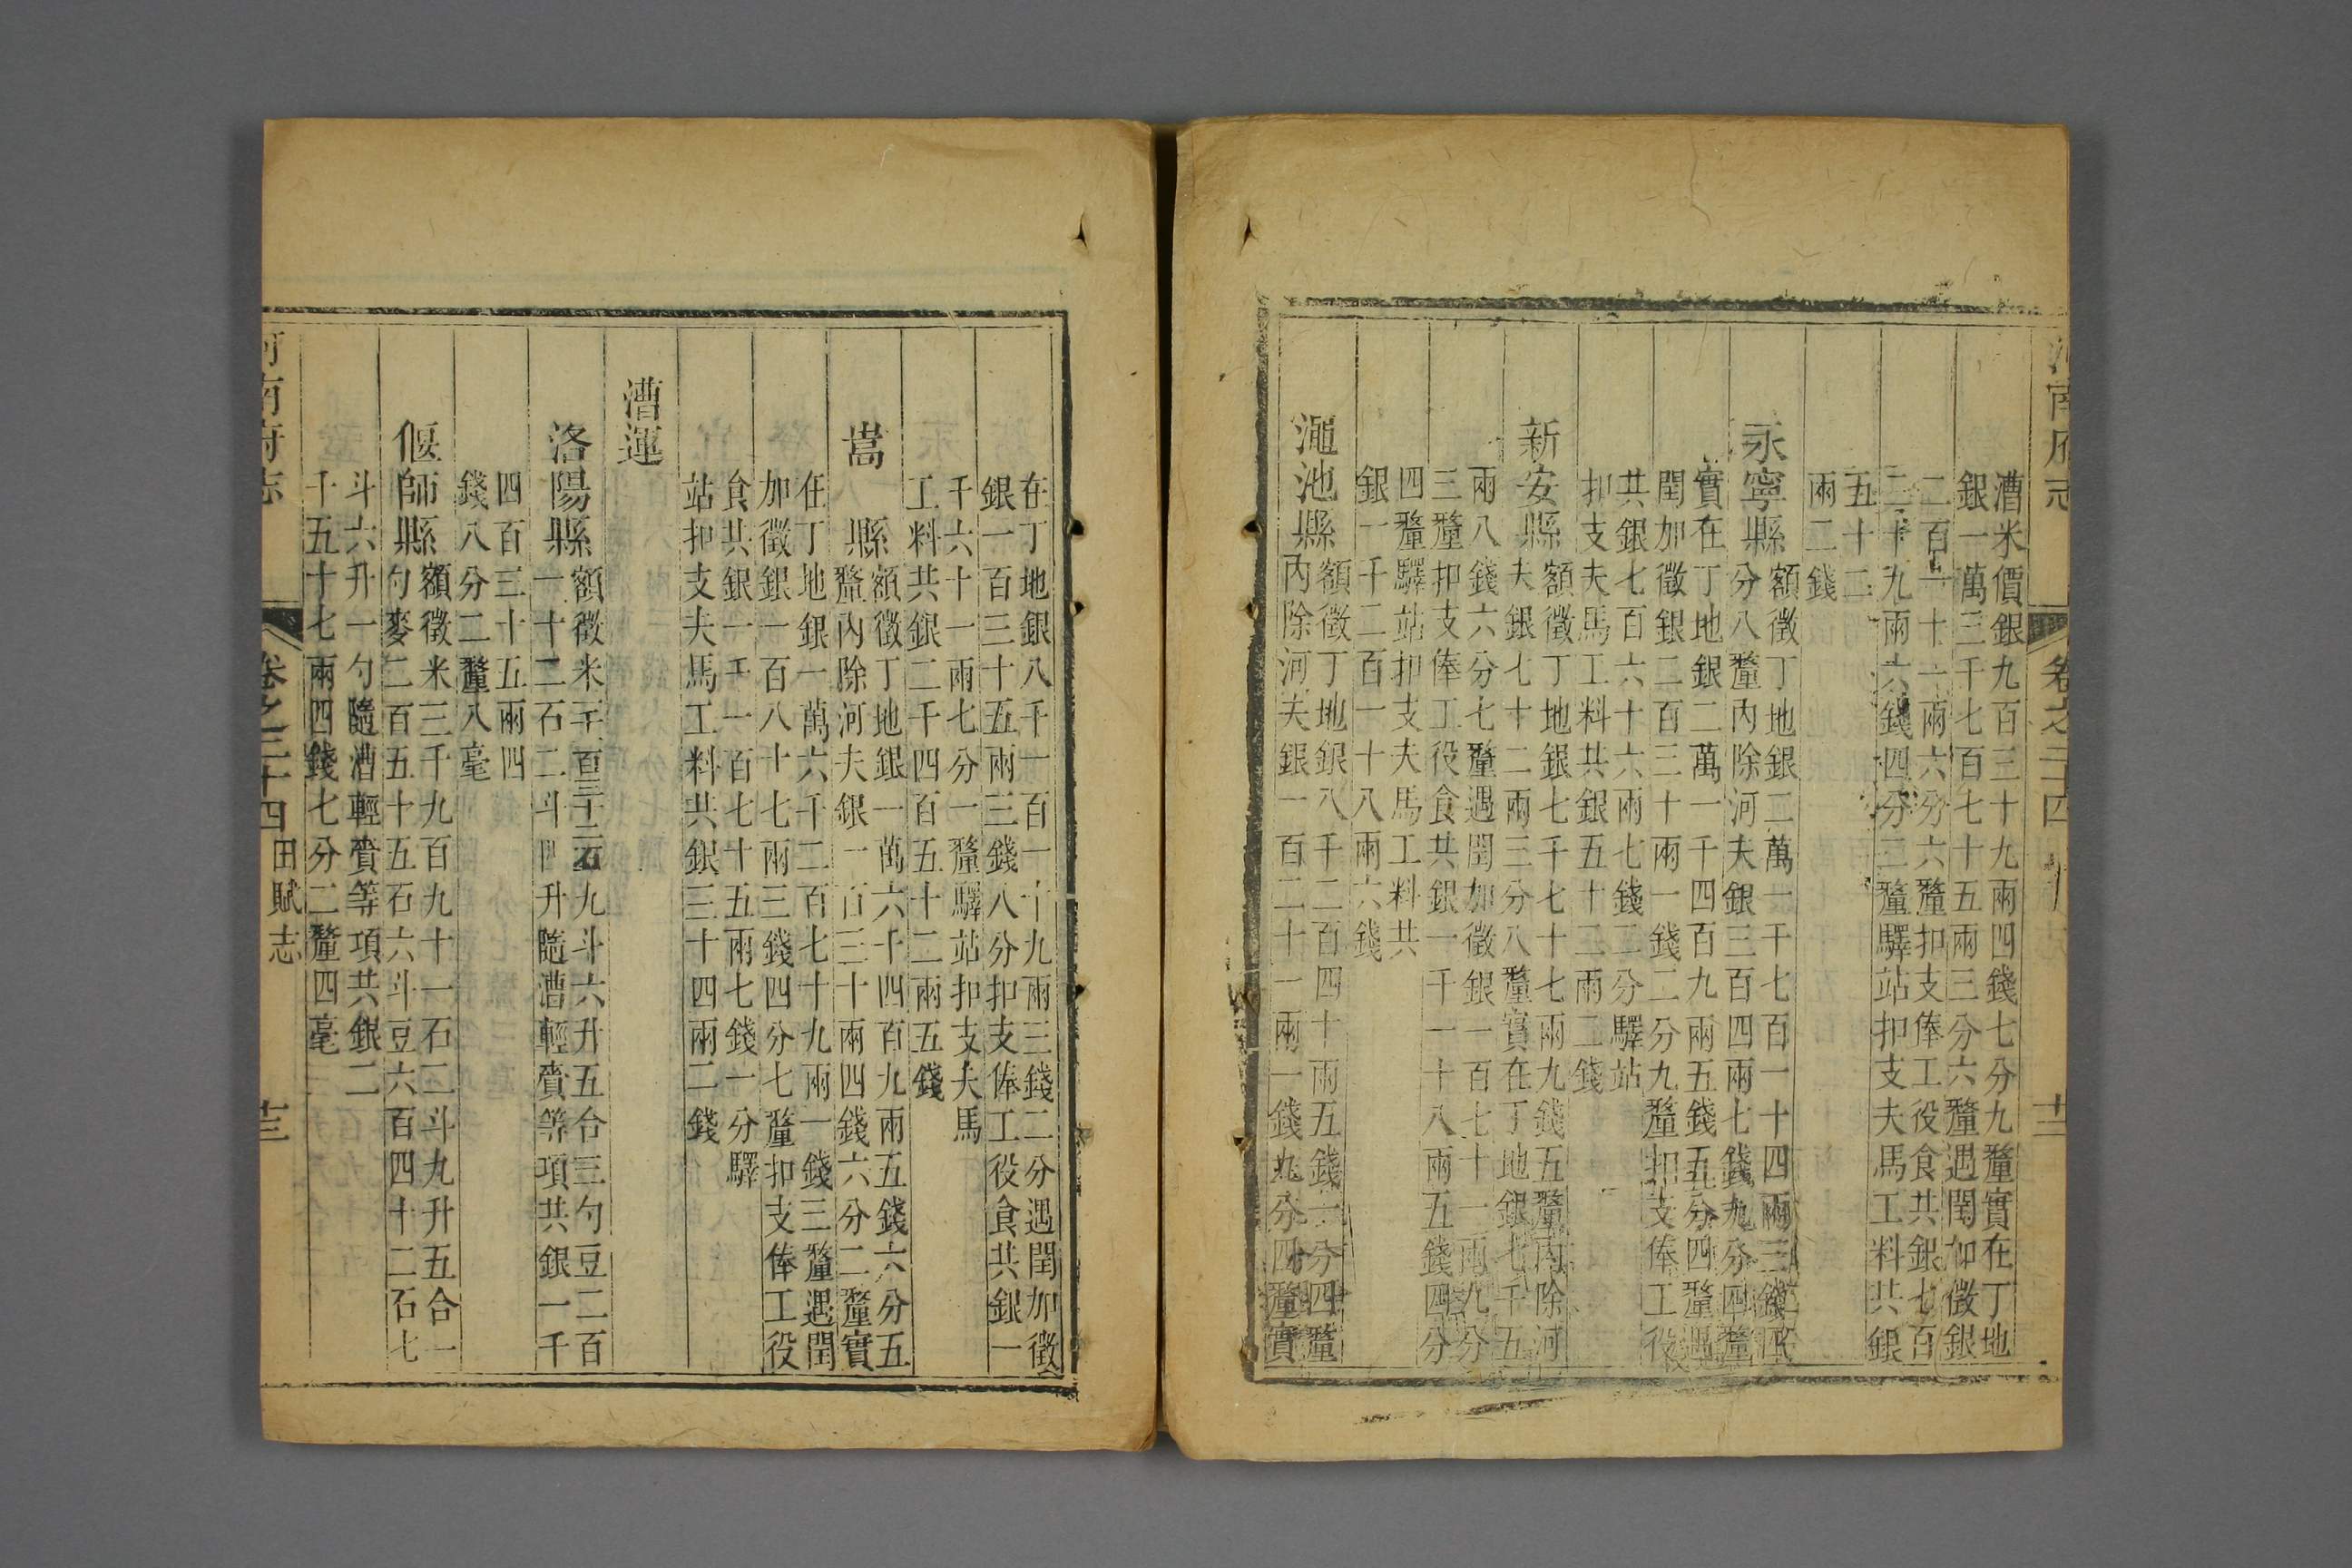 河南府志
卷之二十四
十二
漕米價銀九百三十九兩四錢七分九釐實在丁地
銀一萬三千七百七十五兩三分六釐遇閏加徵銀
二百一十一兩六分六釐扣支俸工役食共銀七百
二十九兩六錢四分二釐驛站扣支夫馬工料共銀
五十二
兩二錢
永寧縣
額徵丁地銀二萬一千七百一十四兩三錢
分八釐內除河夫銀三百四兩七錢九分四釐
實在丁地銀二萬一千四百九兩五錢五分四釐遇
閏加徵銀二百三十兩一錢二分九釐扣支俸工役
共銀七百六十六兩七錢二分驛站
扣支夫馬工料共銀五十二兩二錢
新安縣
額徵丁地銀七千七十七兩九錢五釐內除河
夫銀七十二兩三分八釐實在丁地銀七千五
兩八錢六分七釐遇閏加徵銀一百七十一兩九分
三釐扣支俸工役食共銀一千一十八兩五錢四分
四釐驛站扣支夫馬工料共
銀一千二百一十八兩六錢
澠池縣
額徵丁地銀八千二百四十兩五錢一分四釐
內除河夫銀一百二十一兩一錢九分四釐實
在丁地銀八千一百一十九兩三錢二分遇閏加徵
銀一百三十五兩三錢八分扣支俸工役食共銀一
千六十一兩七分一釐驛站扣支夫馬
工料共銀二千四百五十二兩五錢
嵩縣
額徵丁地銀一萬六千四百九兩五錢六分五
釐內除河夫銀一百三十兩四錢六分二釐實
在丁地銀一萬六千二百七十九兩一錢三釐遇閏
加徵銀一百八十七兩三錢四分七釐扣支俸工役
食共銀一千一百七十五兩七錢一分驛
站扣支夫馬工料共銀三十四兩二錢
漕運
洛陽縣
額徵米二千百三十三石九斗六升五合三勺豆二百
一十二石二斗四升隨漕輕賫等項共銀一千
四百三十五兩四
錢八分二釐八毫
偃師縣
額徵米三千九百九十一石二斗九升五合一
勺麥二百五十五石六斗豆六百四十二石七
斗六升一勺隨漕輕賫等項共銀二
千五十七兩四錢七分二釐四毫
河南府志
卷之二十四
田賦志
十三